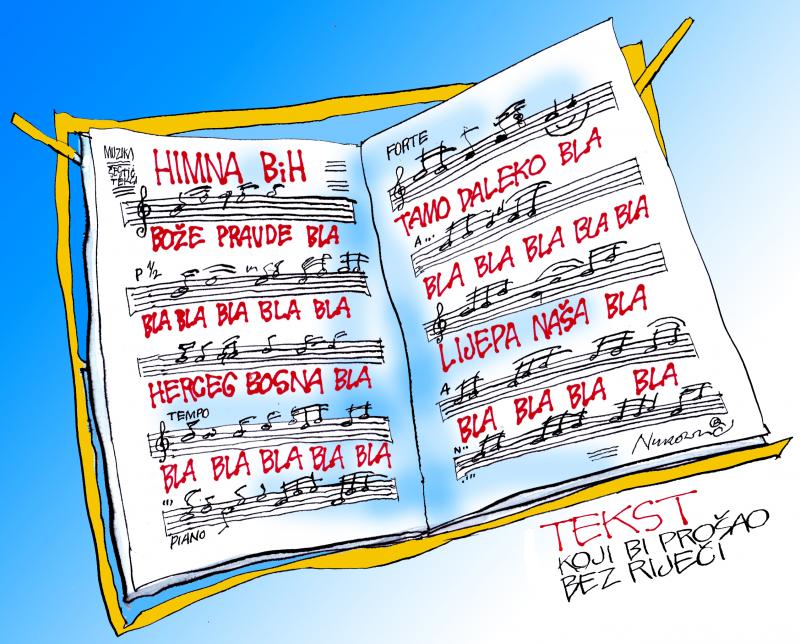 MUZIKA
ŠESTIĆ
HIMNA BiH
BOŽE PRAVDE BLA
P 1/2
BLA BLA BLA BLA BLA
HERCEG BOSNA BLA
TEMPO
BLA BLA BLA BLA BLA
PIANO
FORTE
TAMO DALEKO BLA
A...
BLA BLA BLA BLA BLA
LIJEPA NAŠA BLA
A
BLA BLA BLA BLA
N..
TEKST
KOJI BI PROŠAO
BEZ RIJEČI